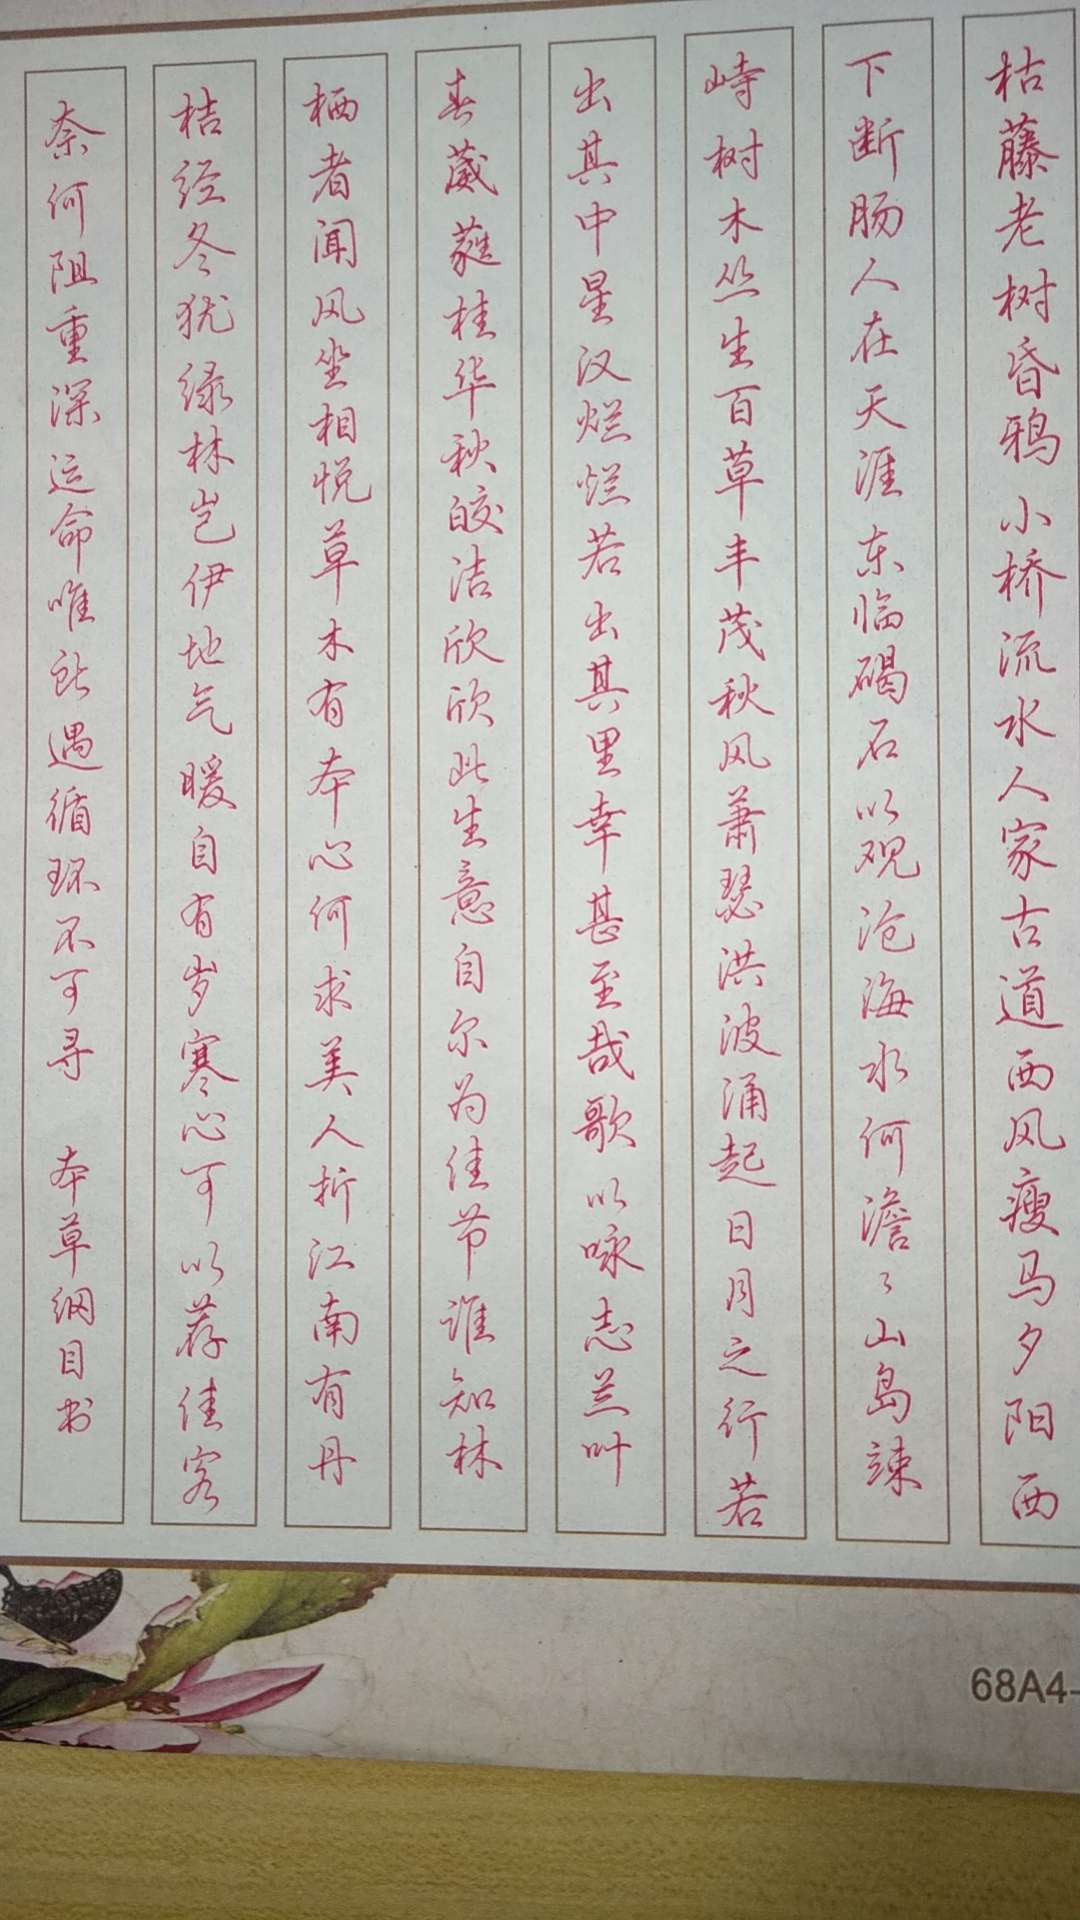 枯藤老树昏鸦小桥流水人家古道西风瘦马夕阳西
下断肠人在天涯东临碣石以观沧海水何澹々山岛竦
峙树木丛生百草丰茂秋风萧瑟洪波涌起日月之行若
出其中星汉烂烂若出其里幸甚至哉歌以咏志兰叶
春葳蕤桂华秋皎洁欣欣此生意自尔为佳节谁知林
栖者闻风坐相悦草木有本心何求美人折江南有丹
桔经冬犹绿林岂伊地气暖自有岁寒心可以荐佳客
奈何阻重深运命唯所遇循环不可寻 本草纲目书
68A4-